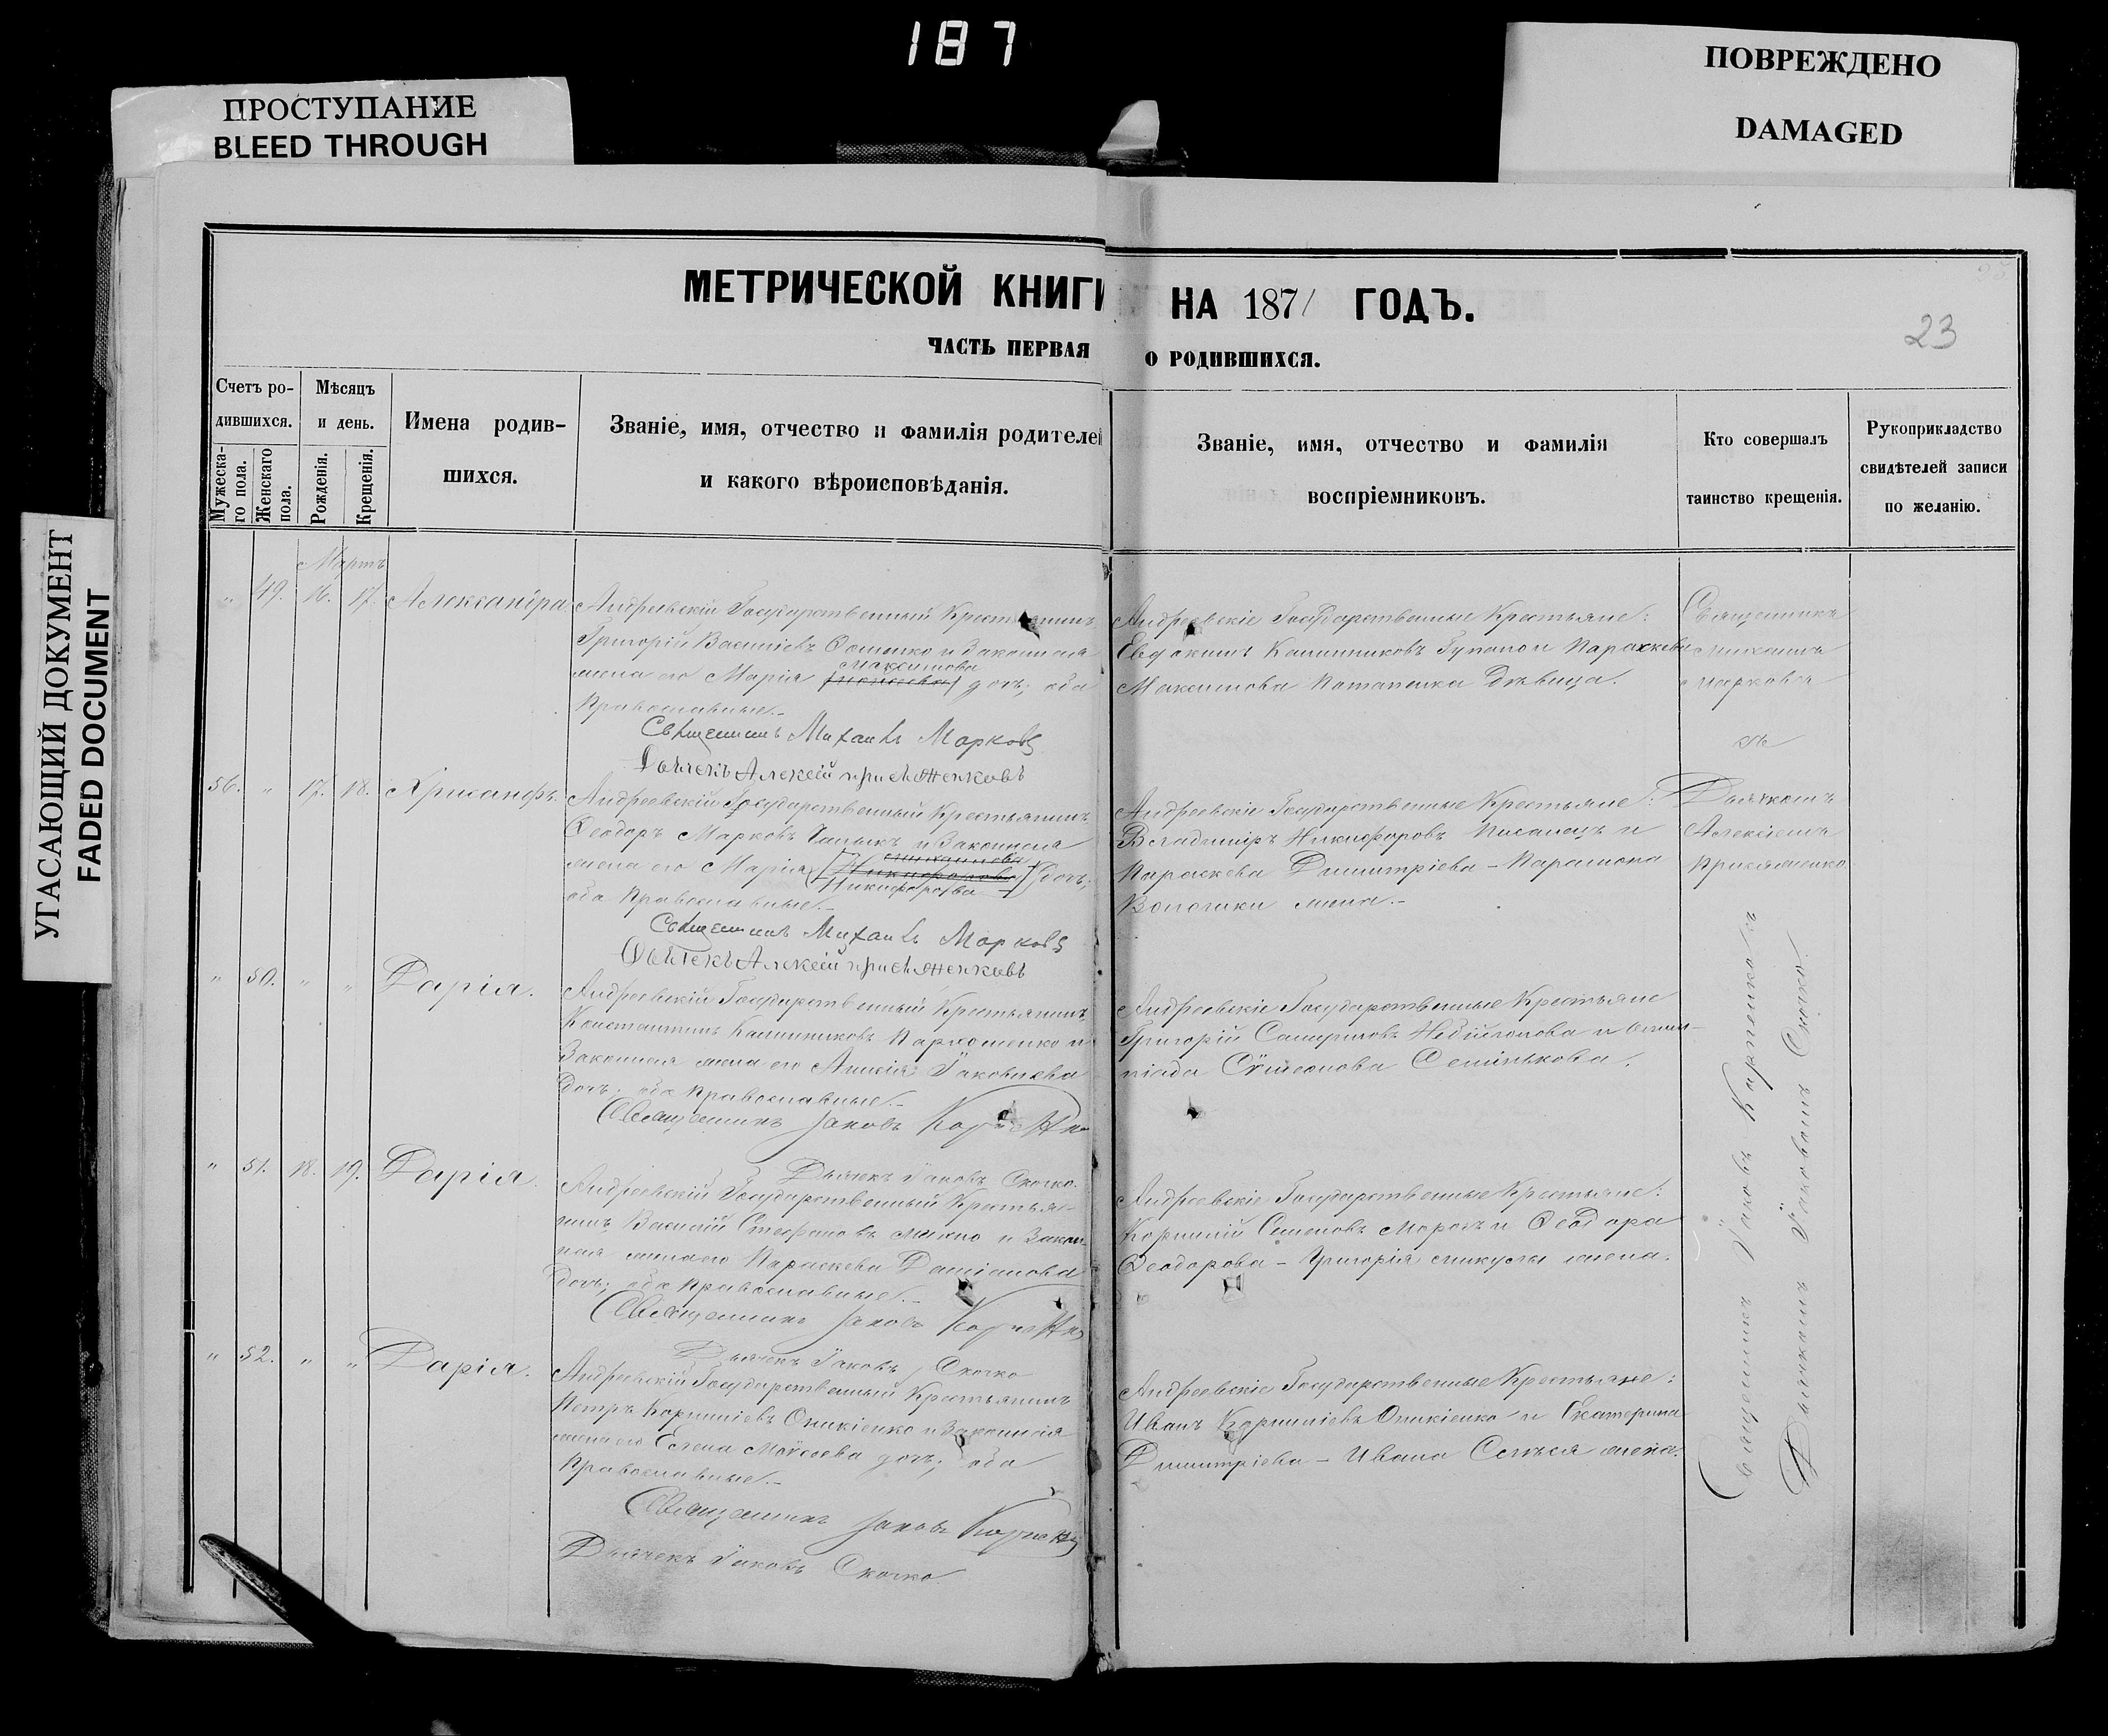 187
ПРОСТУПАНИЕ
BLEED THROUGH
ПОВРЕЖДЕНО
DAMAGED
УГАСАЮЩИЙ ДОКУМЕНТ
FADED DOCUMENT
МЕТРИЧЕСКОЙ КНИГИ НА 1871 ГОДЪ.
23
ЧАСТЬ ПЕРВАЯ О РОДИВШИХСЯ.
Счетъ ро-
дившихся.
Мужеска-
го пола.
Женскаго
пола.
Мѣсяцъ
и день.
Рожденія.
Крещенія.
Имена родив-
шихся.
Званіе, имя, отчество и фамилія родителей
и какого вѣроисповѣданія.
Званіе, имя, отчество и фамилія
воспріемниковъ.
Кто совершалъ
таинство крещенія.
Рукоприкладство
свидѣтелей записи
по желанію.
Мартъ
" 49. 16. 17. Александра
Андреевскій Государственный Крестьянинъ
Григорій Василіевъ и Законная
жена его Марія Максимова дочь; оба
Православные.-
Священникъ Михаилъ Марковъ
Дьячекъ Алексій
Андреевскіе Государственные Крестьяне:
Евдокимъ Калинниковъ и Параскева
Максимова Потапенка Дѣвица.
Священникъ
Михаилъ
Марковъ
съ
Дьячкомъ
Алексіемъ
56. " 17. 18. Хрисанфъ.
Андреевскій Государственный Крестьянинъ
Ѳеодоръ Марковъ и Законная
жена его Марія Никифорова дочь;
оба Православные.-
Священникъ Михаилъ Марковъ
Дьячекъ Алексій
Андреевскіе Государственные Крестьяне:
Владиміръ Никифоровъ и
Параскева Димитріева - жена.-
" 50. " " Дарія.
Андреевскій Государственный Крестьянинъ
Константинъ Калинниковъ Пархоменко и
Законная жена его Іаковлева
дочь; оба Православные.-
Священникъ Іаковъ
Андреевскіе Государственные Крестьяне
Григорій и Олим-
піада Сѵмеонова
" 51. 18. 19. Дарія.
Дьячекъ Іаковъ Скочко.
Андреевскій Государственный Крестья-
нинъ Василій Стефановъ Махно и Закон-
ная жена его Параскева Даміанова
дочь; оба Православные.-
Священникъ Іаковъ
Андреевскіе Государственные Крестьяне:
Корнилій Семеновъ Морозъ и Ѳеодора
Ѳеодорова - Григорія Микулы жена.
" 52. " " Дарія.
Дьячекъ Іаковъ Скочко
Андреевскій Государственный Крестьянинъ
Петръ Корниліевъ Оникіенко и Законная
жена его Елена Моѵсеева дочь; оба
Православные.-
Священникъ Іаковъ
Дьячекъ Іаковъ Скочко
Андреевскіе Государственные Крестьяне:
Иванъ Корниліевъ Оникіенко и Екатерина
Димитріева - Ивана жена.
Священникъ Іаковъ
Дьячкомъ Іаковомъ Скочко.